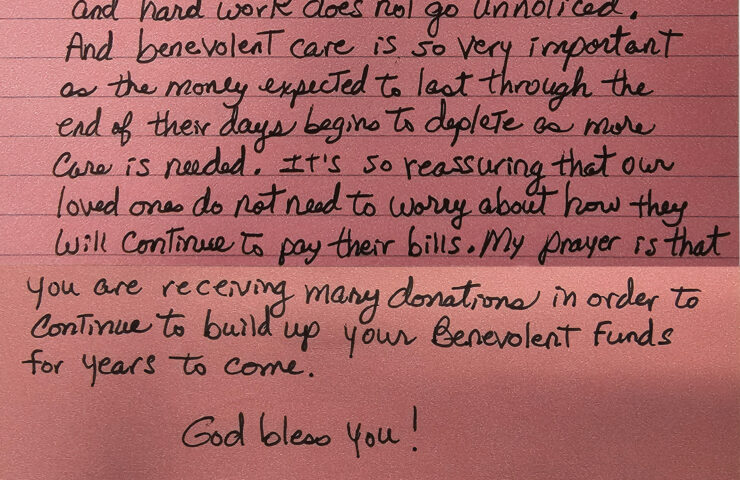 and hard work does not go unnoticed.
And benevolent care is so very important
as the money expected to last through the
end of their days begins to deplete as more
care is needed. It's so reassuring that our
loved ones do not need to worry about how they
will continue to pay their bills. My prayer is that
you are receiving many donations in order to
continue to build up your Benevolent Funds
for years to come.
God bless you!